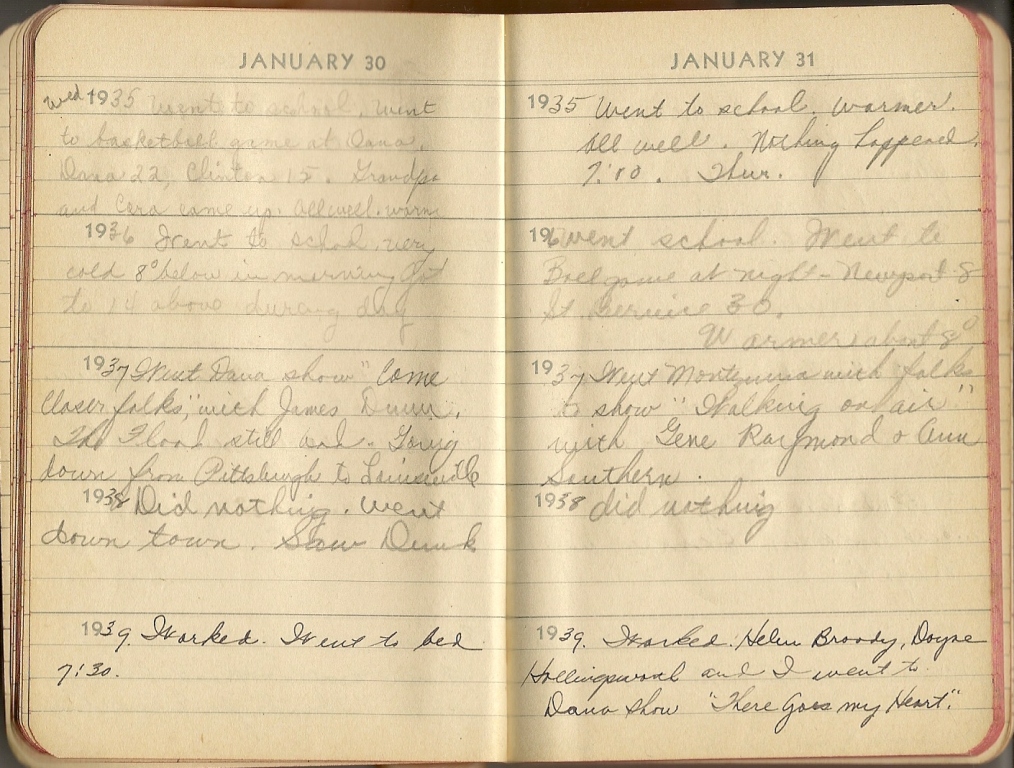 JANUARY 30
Wed 1935 Went to school. Went
to basketball game at Dana.
Dana 22, Clinton 15. Grandpa
and Cora came up. All well. warm
1936 Went to school. very
cold 8° below in morning Got
to 14 above during day
1937 Went Dana show "Come
Closer folks," with James Dunn.
The Flood still and. Going
down from Pittsburgh to Louisville
1938 Did nothing. Went
down town. Saw
1939. Worked. Went to bed
7:30.
JANUARY 31
1935 Went to school. Warmer.
All well. Nothing happend.
7:10. Thur.
1936 went school. Went to
Ball game at night - Newport 8
St Bernice 30.
Warmer about 8°
1937 Went Montezuma with folks
to show "Walking on air"
with Gene Raymond & Ann
Southern.
1938 did nothing
1939. Worked. Helen Broady, Doyne
Hollingsworth and I went to
Dana show "There Goes my Heart".